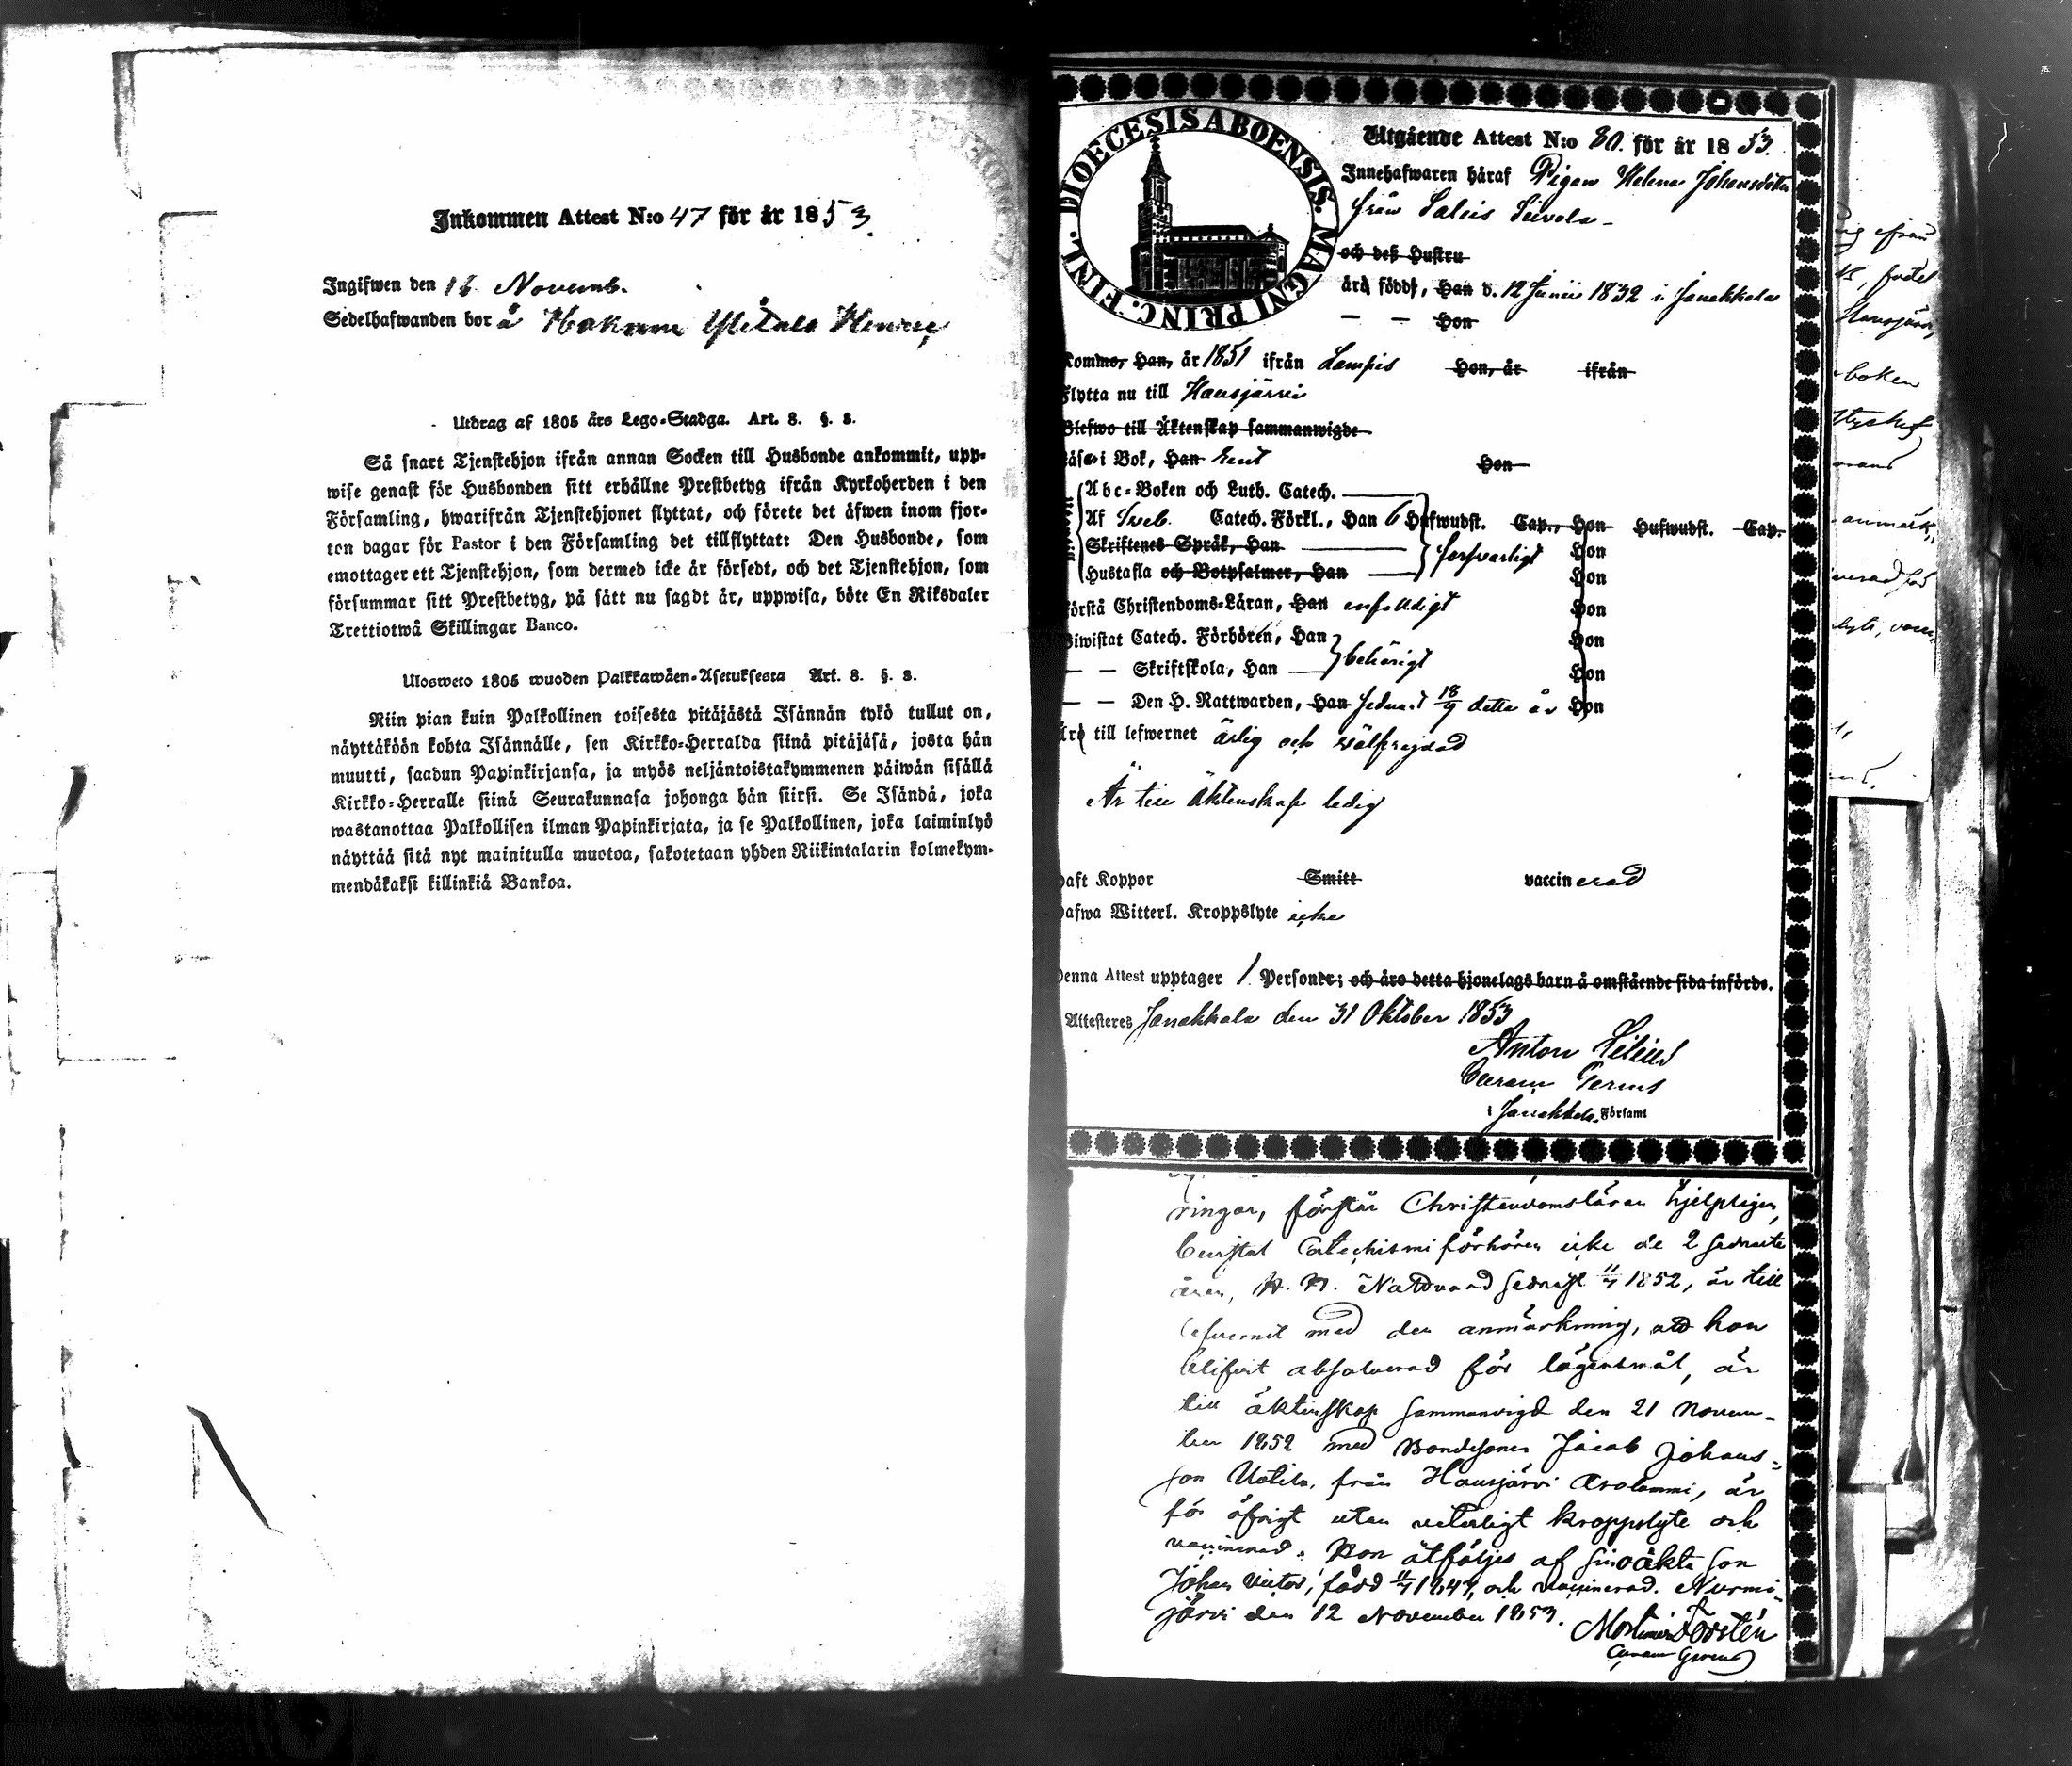 Inkommen Attest N:o 47 för år 1853.
Ingifwen den 16 Novemb.
Sedelhafwanden bor å
Utdrag af 1805 års Lego-Stadga. Art. 8. §. 8.
Så snart Tjenstehjon ifrån annan Socken till Husbonde ankommit, upp-
wise genast för Husbonden sitt erhållne Prestbetyg ifrån Kyrkoherden i den
Församling, hwarifrån Tjenstehjonet flyttat, och förete det äfwen inom fjor-
ton dagar för Pastor i den Församling det tillflyttat: Den Husbonde, som
emottager ett Tjenstehjon, som dermed icke är försedt, och det Tjenstehjon, som
försummar sitt Prestbetyg, på sätt nu sagdt är, uppwisa, böte En Riksdaler
Trettiotwå Skillingar Banco.
Ulosweto 1805 wuoden Palkkawäen-Asetuksesta Art. 8. §. 8.
Niin pian kuin Palkollinen toisesta pitäjästä Isännän tykö tullut on,
näyttäköön kohta Isännälle, sen Kirkko-Herralda siinä pitäjäsä, josta hän
muutti, saadun Papinkirjansa, ja myös neljäntoistakymmenen päiwän sisällä
Kirkko-Herralle siinä Seurakunnasa johonga hän siirsi. Se Isändä, joka
wastanottaa Palkollisen ilman Papinkirjata, ja se Palkollinen, joka laiminlyö
näyttää sitä nyt mainitulla muotoa, sakotetaan yhden Riikintalarin kolmekym-
mendäkaksi killinkiä Bankoa.
DIOECESIS ABOENSIS. MAGNI PRINC. FINL.
Utgående Attest N:o 80. för år 1853.
Innehafwaren häraf Pigan Helena Johansdotter
från Salois Seivola
och deß Hustru
äro född, Han d. 12 Junii 1832 i Janakkala
— — Hon
Komme, Han, år 1851 ifrån Lampis Hon, år ifrån
Flytta nu till Hausjärvi
Blefwo till Äktenskap sammanwigde
Läser i Bok, Han rent Hon
Abc-Boken och Luth. Catech.
Af Sveb. Catech. Förkl., Han 6 Hufwudst. Cap., Hon Hufwudst. Cap.
Skriftenes Språk, Han försvarligt Hon
Hustafla och Botpsalmer, Han Hon
Förstå Christendoms-Läran, Han enfaldigt Hon
Biwistat Catech. Förhören, Han Hon
— — Skriftskola, Han behörigt Hon
— — Den H. Nattwarden, Han sednast 18/9 detta år Hon
Äro till lefwernet ärlig och välfrejdad
Är till äktenskap ledig
Haft Koppor Smitt vaccinerad
Hafwa Witterl. Kroppslyte icke
Denna Attest upptager 1 Personer; och äro detta hjonelags barn å omstående sida införde.
Attesteres Janakkala den 31 Oktober 1853
Anton Lilius
Curam Gerens
i Janakkala Församl
ringar, förstår Christendomsläran hjelpligen,
bevistat Catechismi förhören icke de 2 sednaste
åren, H. H. Nattvard sednast 11/7 1852, är till
lefvernet med den anmärkning, att hon
blifvit absolverad för lägersmål, är
till äktenskap sammanvigd den 21 Novem-
ber 1852 med Bondesonen Jacob Johans-
son Uotila, från Hausjärvi Arolammi, är
för öfrigt utan veterligt kroppslyte och
vaccinerad. Hon åtföljes af sin oäkta son
Johan Victor, född 11/7 1847, och vaccinerad. Nurmi-
järvi den 12 November 1853.
Mortimer Forstén
Curam Gerens